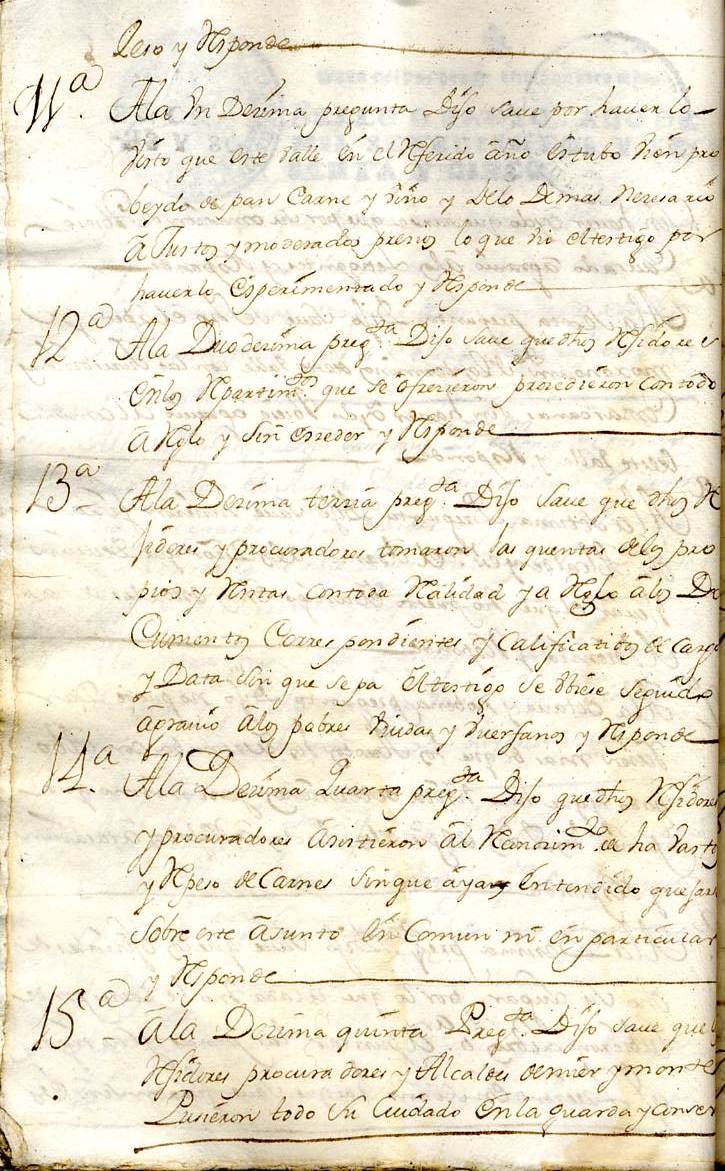 Peso y Rsponde
11ª. A la Un Dezima pregunta Dijo save por haver lo
visto que este Valle en el Rferido año estubo bien pro
beydo de pan Carne y vino y delo Demas Nezesario
a Justos y moderados prezios lo que vio el testigo por
haverlo Esperimentado y Rsponde
12ª. A la Duodezima pregta. Dijo save que dhos Rjidores
en los Rpartimtos. que se ofrezieron prozedieron con todo
a Rglo y sin exzeder y Rsponde
13ª A la Dezima terzia pregta. Dijo save que dhos R
jidores y procuradores tomaron las quentas delos pro
pios y Rntas con toda Ralidad y a Rglo alos Do
Cumentos Correspondientes y Calificatibos de cargo
y Data sin que sepa el testigo se ubiese seguido
agravio alos pobres Viudas y huerfanos y Rsponde
14ª. A la Dezima Quarta pregta. Dijo que dhos Rjidores
y procuradores asistieron al Reconozimto. de
y Rpeso de Carnes sin que aya entendido
sobre este asunto en Comun ni en particular
y Rsponde
15ª A la Dezima quinta Pregta. Dijo save que
Rjidores procuradores y Alcaldes de mier y montes
Pusieron todo su Cuidado en la guarda y conser